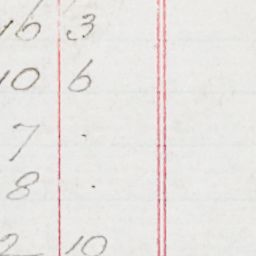 16 3
10 6
7 .
8 .
2 10